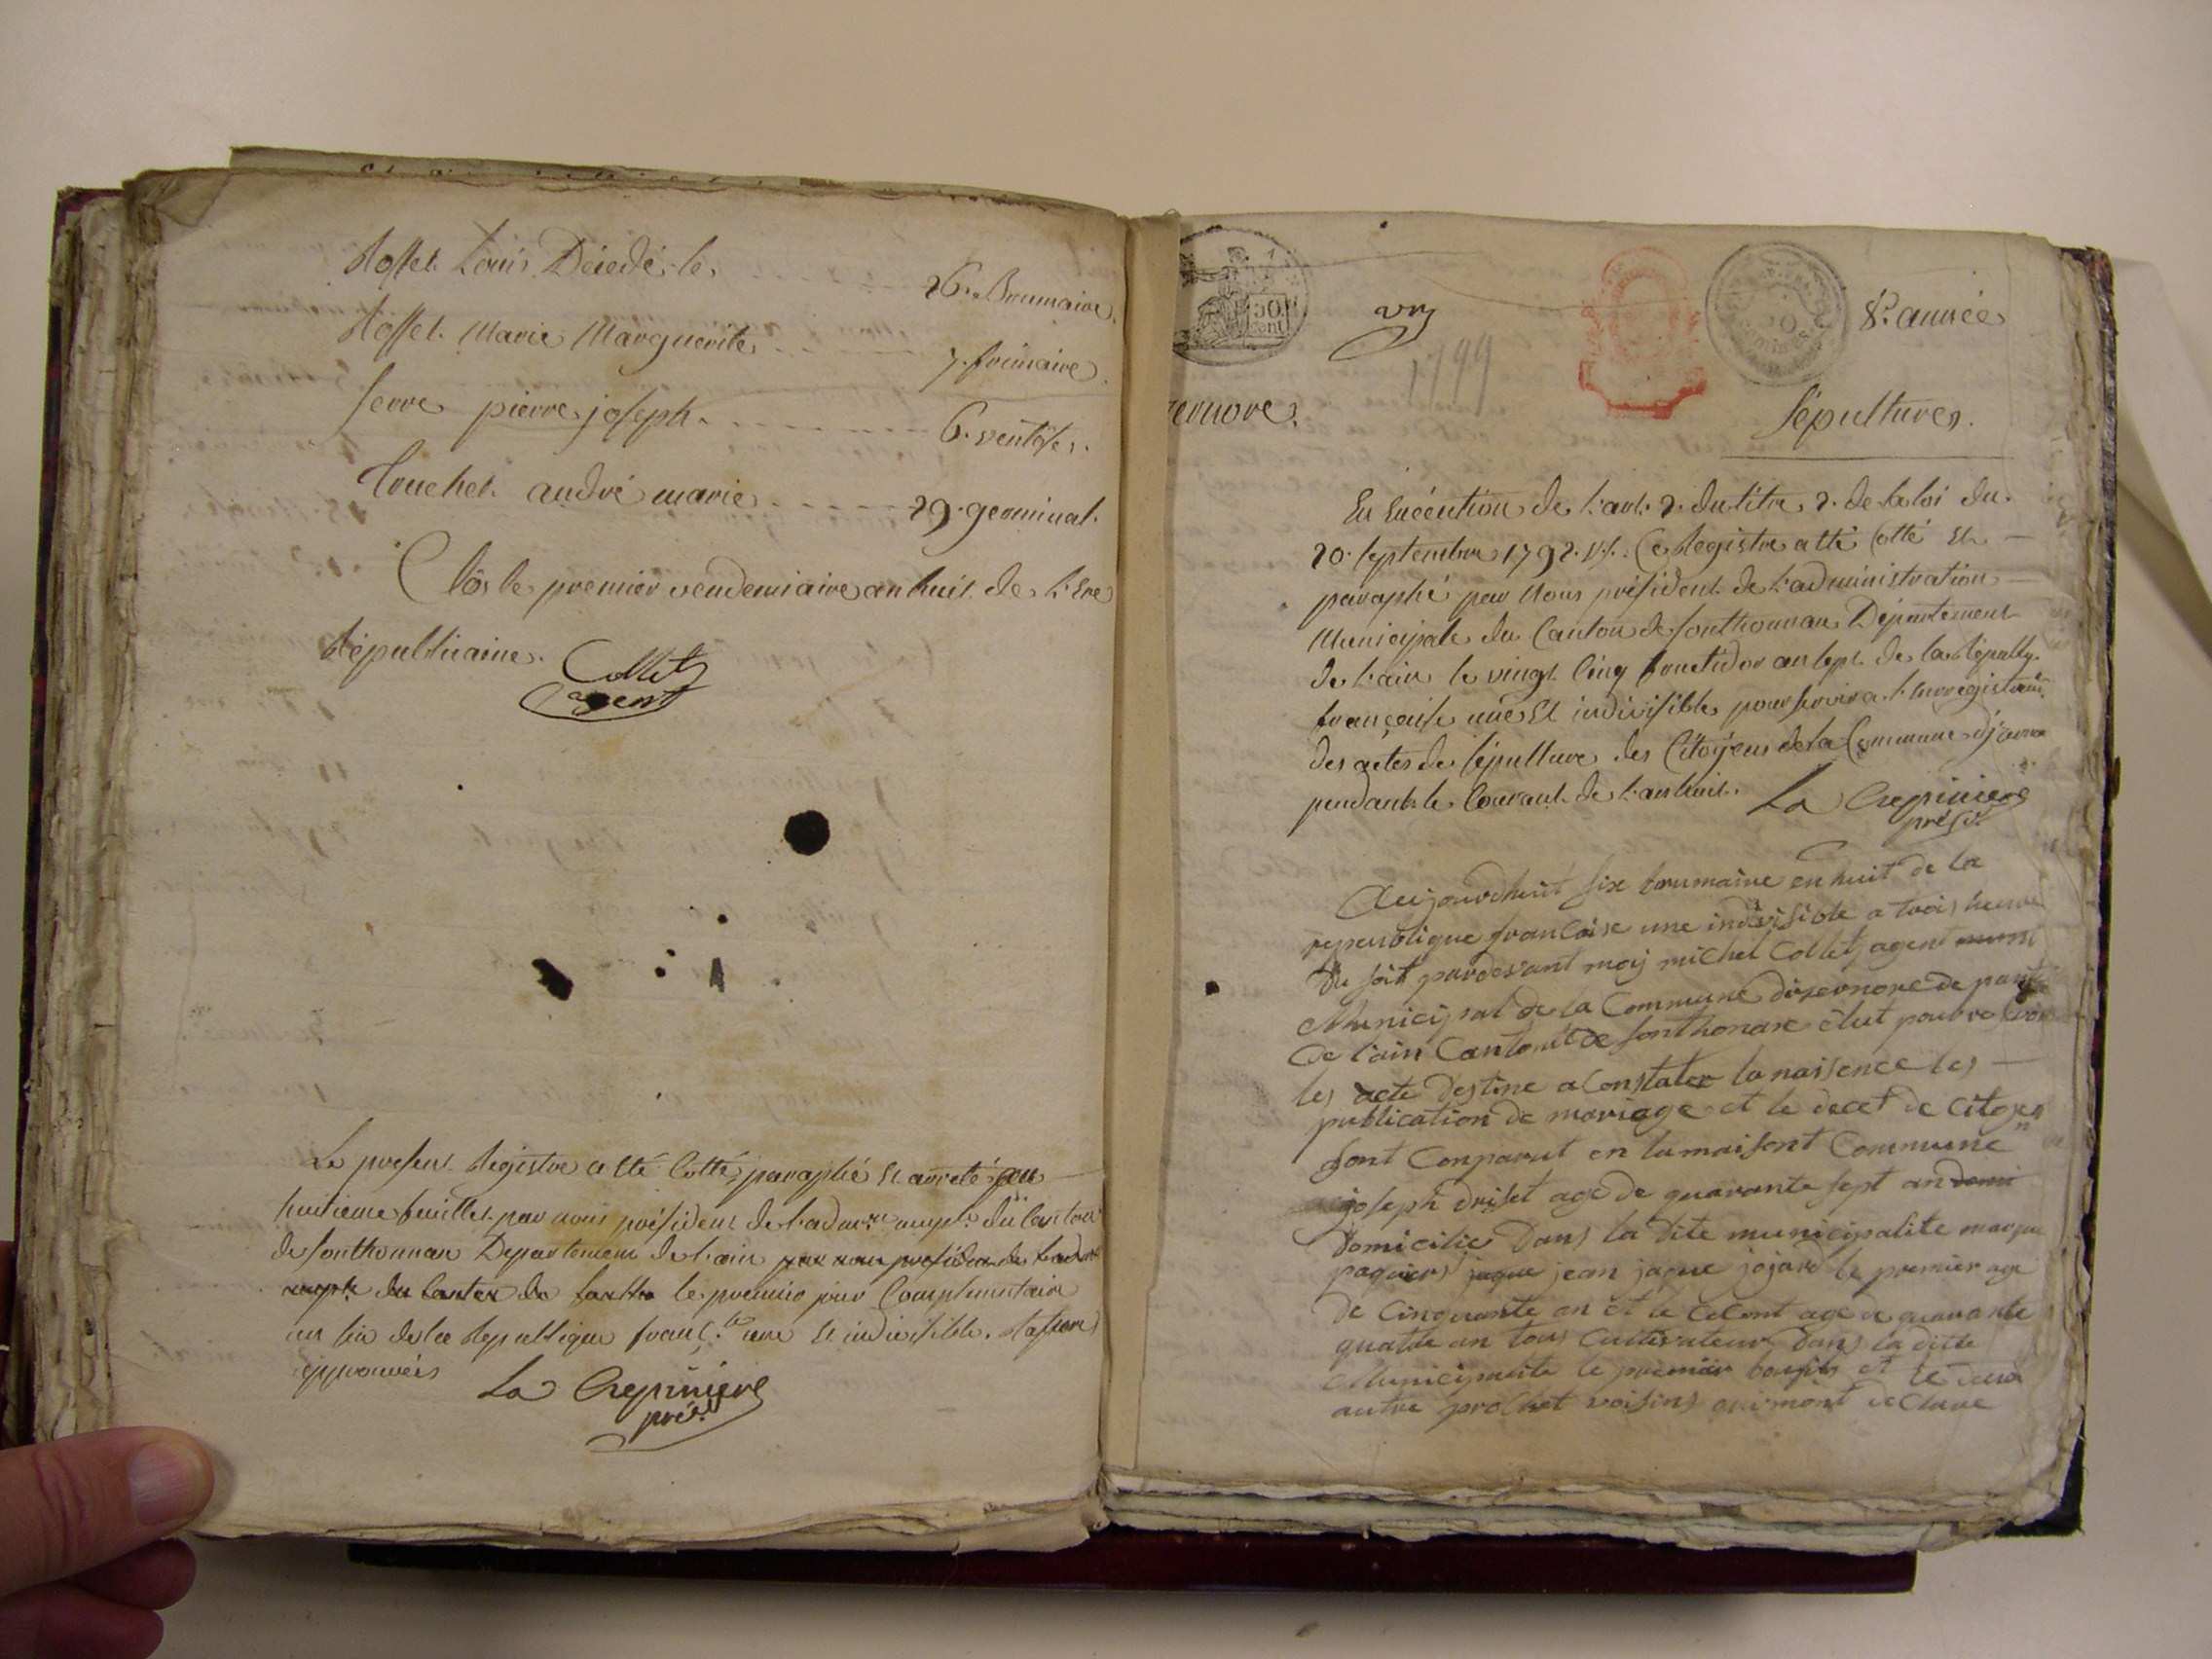 Rosset Louis Désedé le
26. Brumaire.
Rosset Marie Marguerite
7. frimaire.
Serre pierre joseph.
6. ventôse.
Truchet andré marie
29. germinal.
Clôs le premier vendemiaire an huit de l'Ere
Républicaine. Collet
agent
Le present Registre a été Cotté, paraphé et arreté au
huitieme feuillet par nous président de l'adm.on muple du Canton
de Sonthonnax Departement de l'ain par nous president de l'adm
muple du Canton de Sontho le premier jour Complementaire
an six de la Republique franç.se une et indivisible. Ratures
approuvées La Crepiniere
prés.
50
cent
vry
1799
8.e année
ernore.
Sépultures.
En Exécution de l'art. 2. du titre 2. de la loi du
20. septembre 1792. v.s. Ce Registre a été Cotté et
paraphé par Nous président de l'administration
Municipale du Canton de Sonthonnax Département
de l'ain le vingt Cinq fructidor an sept de la Républq.
française une et indivisible pour servir a l'enregistrem.
des actes de sépulture des Citoyens de la Commune d'
pendant le Courant de l'an huit. La Crepiniere
présid.
Aujourdhuit six brumaire en huit de la
republique francoise une indivisible a trois heure
du soit pardevant moy michel Collet agent
Municipal de la Commune dizernore de
de l'ain Canton de Sonthonax élut pour
les acte destine a Constater la naissence les
publication de mariage et le decet de Citoyen
sont Conparut en la maisont Commune
joseph driset age de quarante sept an
domicilie dans la dite municipalite
paquiers jaque jean jaque jojard le premier age
de Cinquante an et le Cecont age de quarante
quatre an tous Cultivateur dans la dite
Municipalite le premier et le deux
autre prochet voisins qui mont declare